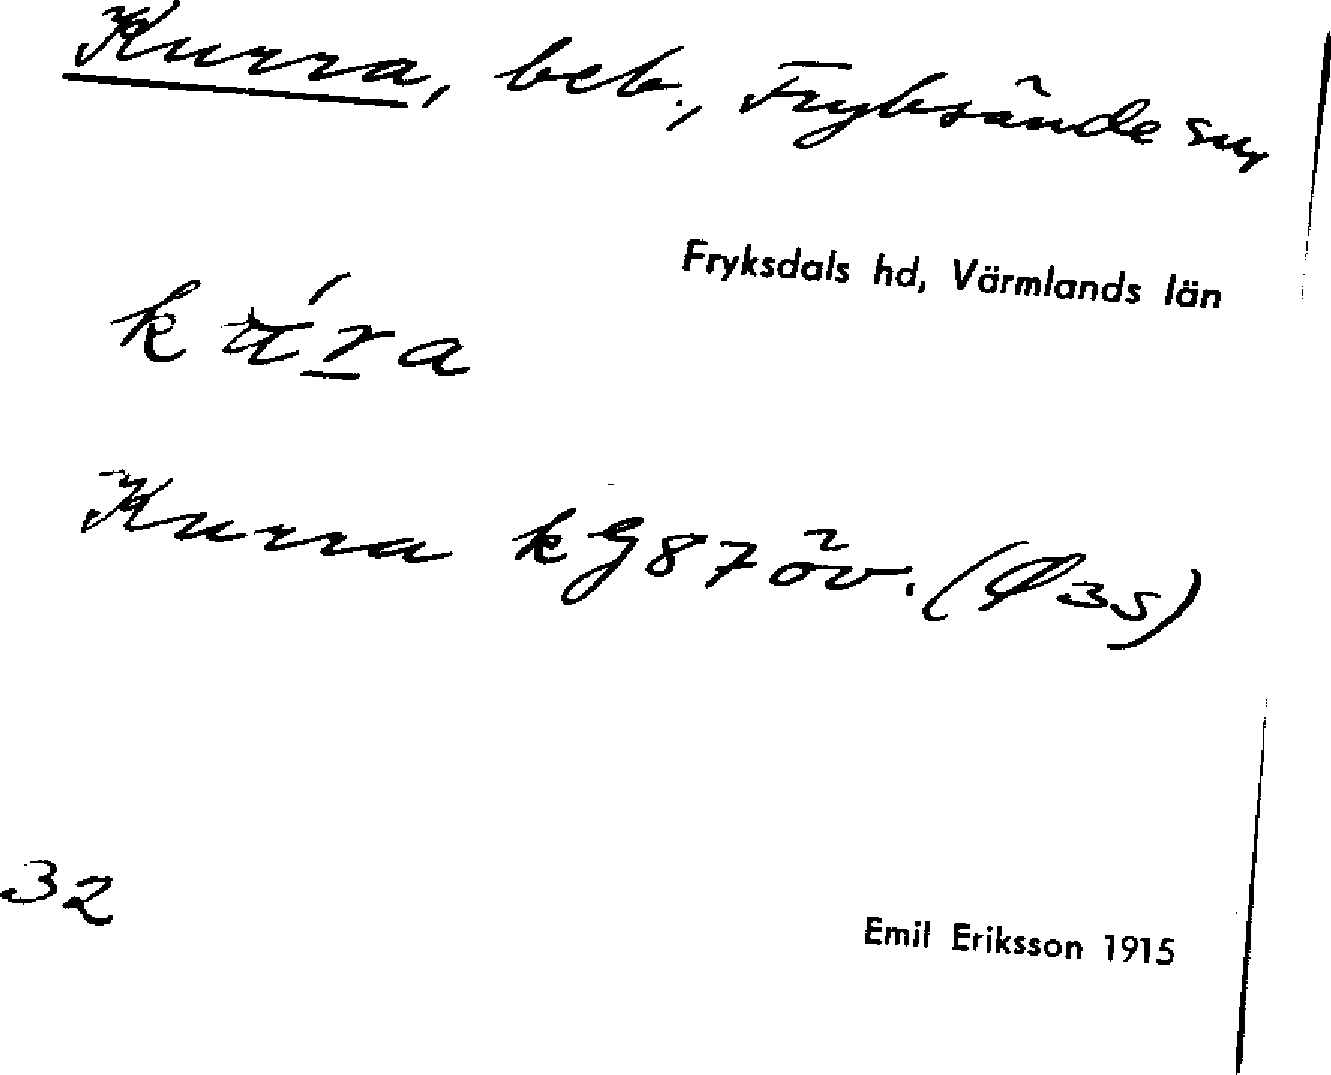 Kurra, beb., Fryksände sn,
Fryksdals hd, Värmlands län
Kurra kG87öv. (Ø35)
32
Emil Eriksson 1915